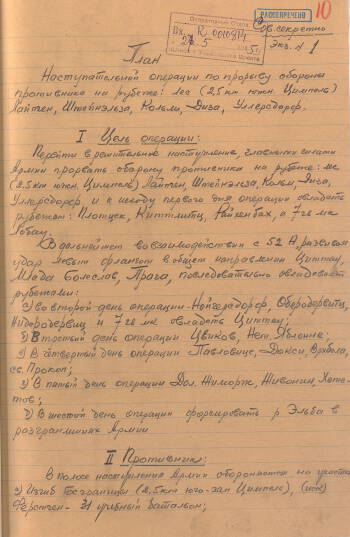 РАССЕКРЕЧЕНО
10
Сов. секретно
Экз. № 1
Оперативный Отдел
Вх. № 0010814
25.5
План
Наступательной операции по прорыву обороны
противника на рубеже: лес (2,5 км южн. Цимпель)
Лайпен, Штейнэльза, Кольм, Диза, Уллерсдорф.
I Цель операции:
Перейти в решительное наступление, главными силами
Армии прорвать оборону противника на рубеже: лес
(2,5 км южн. Цимпель) Лайпен, Штейнэльза, Кольм, Диза,
Уллерсдорф, и к исходу первого дня операции овладеть
рубежом: Плотцск, Киттлитц, Райхенбах, а 7 гв мк
Лобау.
В дальнейшем во взаимодействии с 52 А, развивая
удар левым флангом в общем направлении Циттау,
Млада Болеслав, Прага, последовательно овладевать
рубежами:
во второй день операции - Обероденвитц,
Нидеродервиц и 7 гв мк овладеть Циттау;
В третий день операции Цвиков, Яблонне;
В четвертый день операции Павловице, Докси,
св. Прокоп;
В пятый день операции Дол.
В шестой день операции форсировать р Эльба в
разгранлиниях Армии
II Противник:
В полосе наступления Армии обороняется на участке
Изгиб Госграницы (2,5 км юго-зап Цимпель), (иск)
Ферстген - 31 учебный батальон;